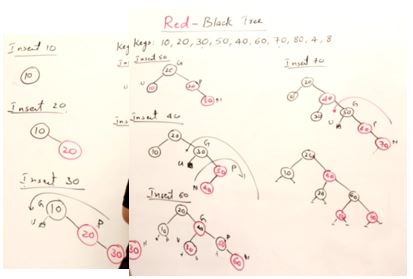 Red-Black Tree
Keys: 10, 20, 30, 50, 40, 60, 70, 80, 4, 8
Insert 10
10
Insert 20
10
20
Insert 30
G
U
10
P
20
30
Insert 50
G
20
U
10
P
30
50
N
Insert 40
20
G
10
30
U
P
50
N
40
Insert 60
20
G
10
40
30
50
60
Insert 70
20
10
40
G
30
50
U
P
60
70
N
20